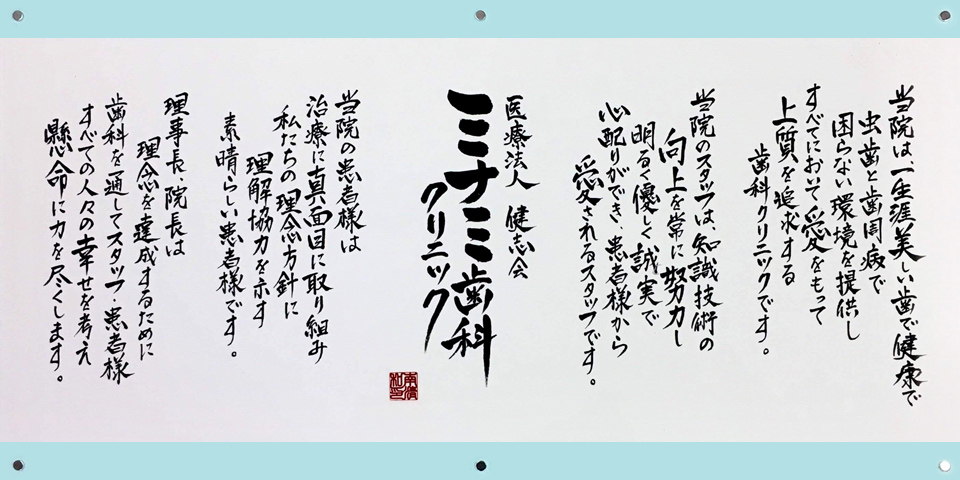 当院は、一生涯美しい歯で健康で
虫歯と歯周病で
困らない環境を提供し
すべてにおいて愛をもって
上質を追求する
歯科クリニックです。
当院のスタッフは、知識技術の
向上を常に努力し
明るく優しく誠実で
心配りができ、患者様から
愛されるスタッフです。
医療法人 健志会
ミナミ歯科
クリニック
当院の患者様は
治療に真面目に取り組み
私たちの理念方針に
理解協力を示す
素晴らしい患者様です。
理事長・院長は
理念を達成するために
歯科を通してスタッフ・患者様
すべての人々の幸せを考え
懸命に力を尽くします。